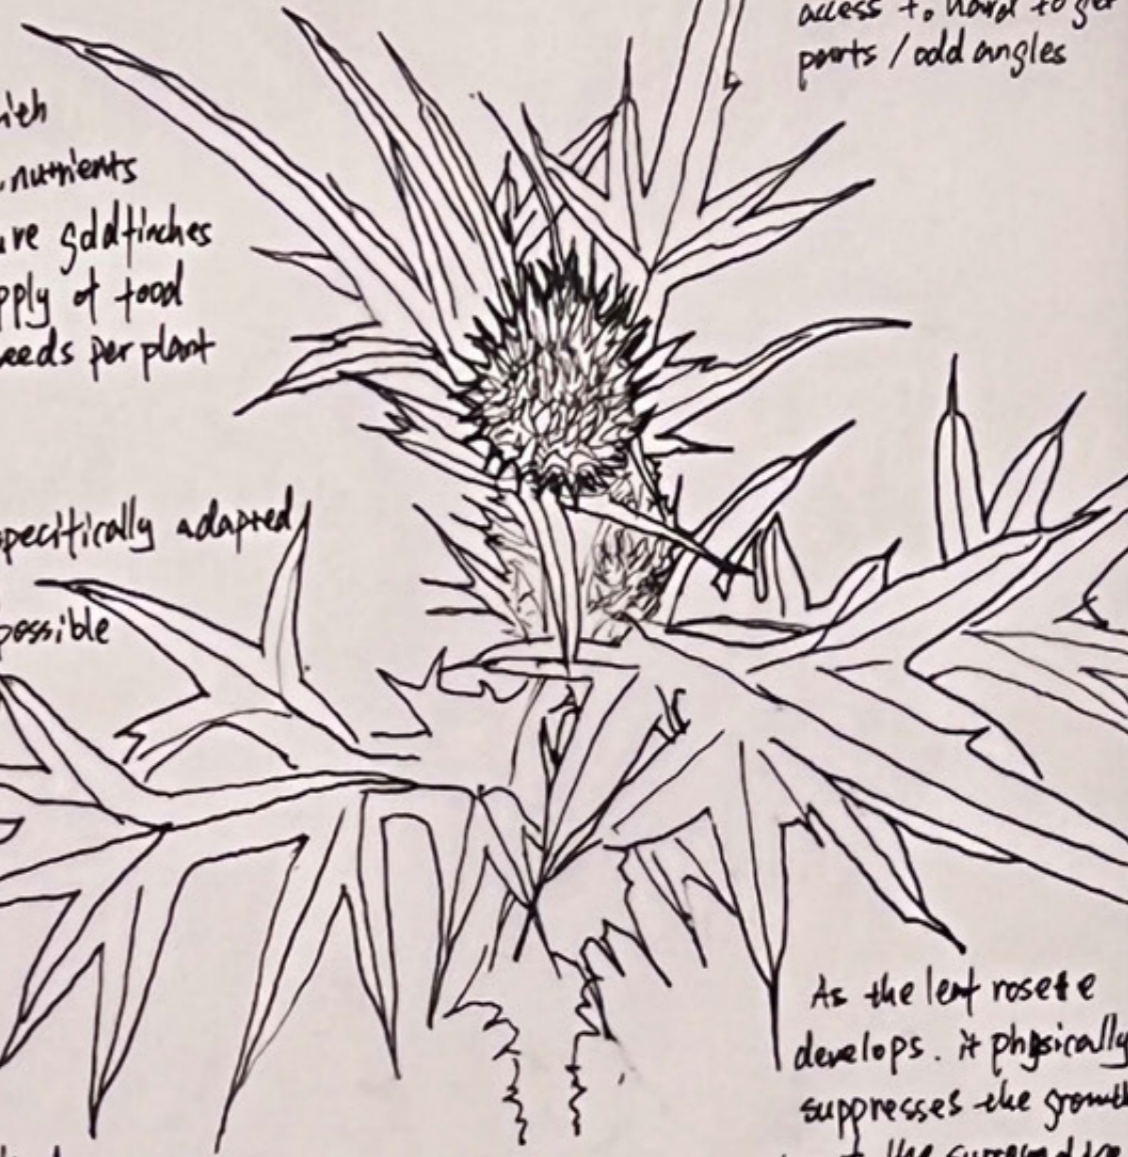 access to hard to get
parts / odd angles
nutrients
goldfinches
of food
seeds per plant
specifically adapted
possible
As the leaf rosete
develops. it physically
suppresses the growth
the surrounding